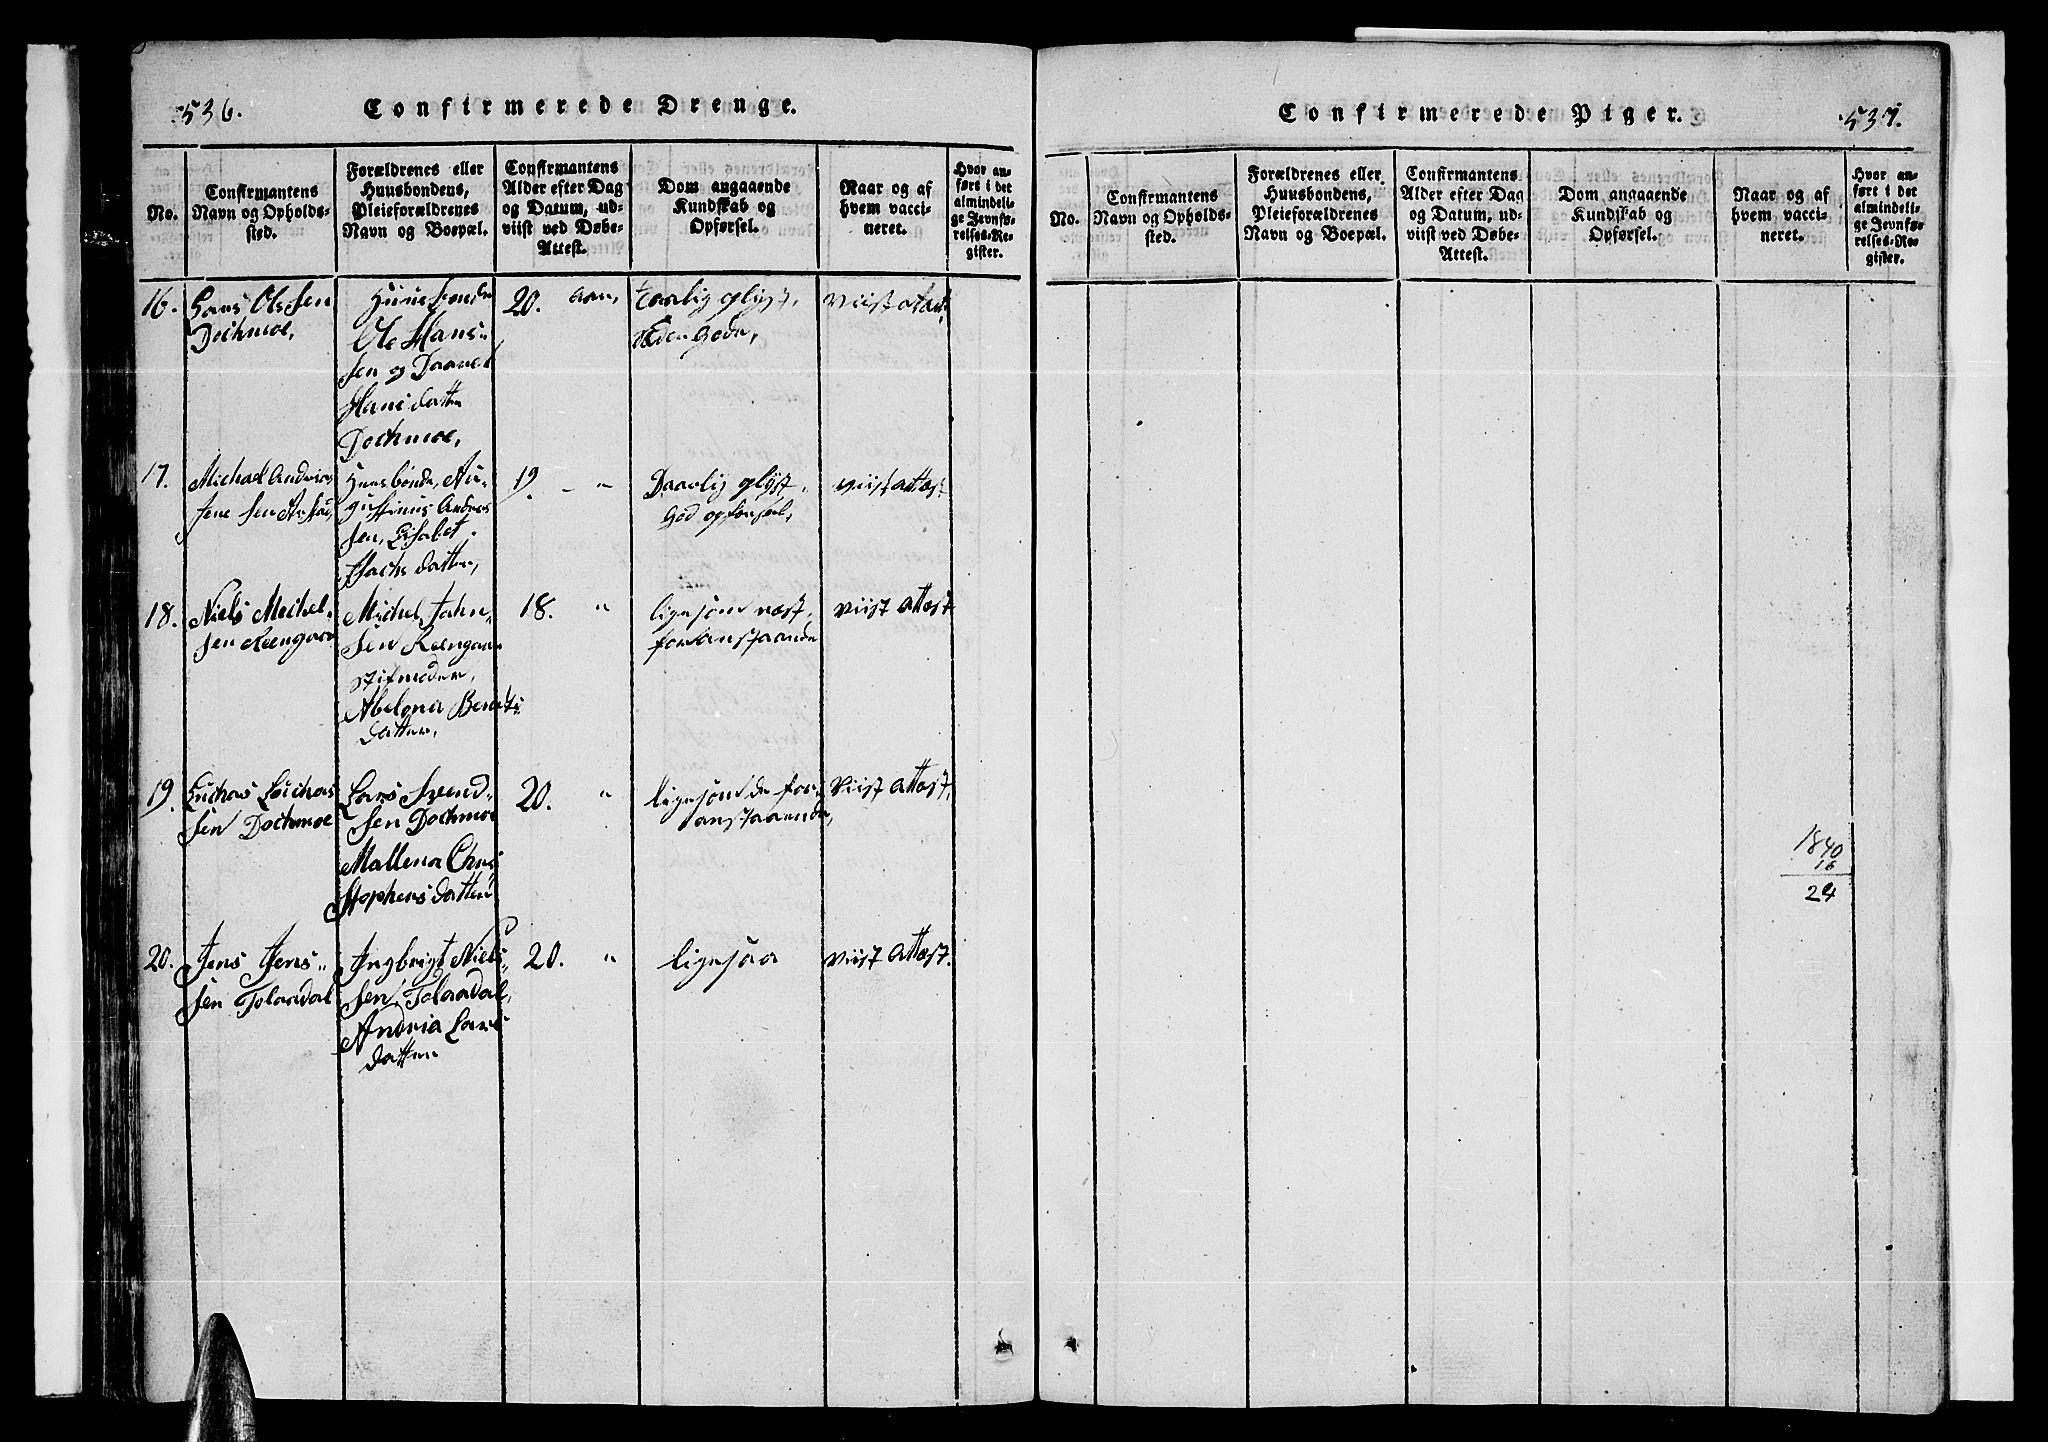 536.
Confirmerede Drenge.
No.
Confirmantens
Navn og Opholds-
sted.
Forældrenes eller
Huusbondens,
Pleieforældrenes
Navn og Boepæl.
Confirmantens
Alder efter Dag
og Datum, ud-
viist ved Døbe-
Attest.
Dom angaaende
Kundskab og
Opførsel.
Naar og af
hvem vacci-
neret.
Hvor an-
ført i det
almindeli-
ge Jevnfø-
relses-Re-
gister.
16.
Hans Olssen
Dochmoe,
Ole Hans-
sen og Daaret
Hansdatter
Dochmoe,
20. aar,
taarlig oplyst,
viist
17.
Michael Andrias
Huusbonde Au-
gustinus Andreas
sen, Elisabet
datter,
19. - "
Daarlig oplyst,
God opførsel,
viist attest
18.
Niels Michel-
sen Reengaar
Michel Jahn-
sen Reengaar
stifmoder,
Abelona Bendts
datter,
18. "
ligesom næst
foranstaaende
viist attest
19.
Luchas Luchas
sen Dochmoe
Lars Svend-
sen Dochmoe
Mallena Chri
stophersdatter
20. "
ligesom de for-
anstaaende,
viist attest,
20.
Jens Jens-
sen Tolaadal
Ingbrigt Niels-
sen Tolaadal,
Andria Lars
datter
20. "
ligesaa
viist attest.
537.
Confirmerede Piger.
No.
Confirmantens
Navn og Opholds-
sted.
Forældrenes eller
Huusbondens,
Pleieforældrenes
Navn og Boepæl.
Confirmantens
Alder efter Dag
og Datum, ud-
viist ved Døbe-
Attest.
Dom angaaende
Kundskab og
Opførsel.
Naar og af
hvem vacci-
neret.
Hvor an-
ført i det
almindeli-
ge Jevnfø-
relses-Re-
gister.
1840
16
24